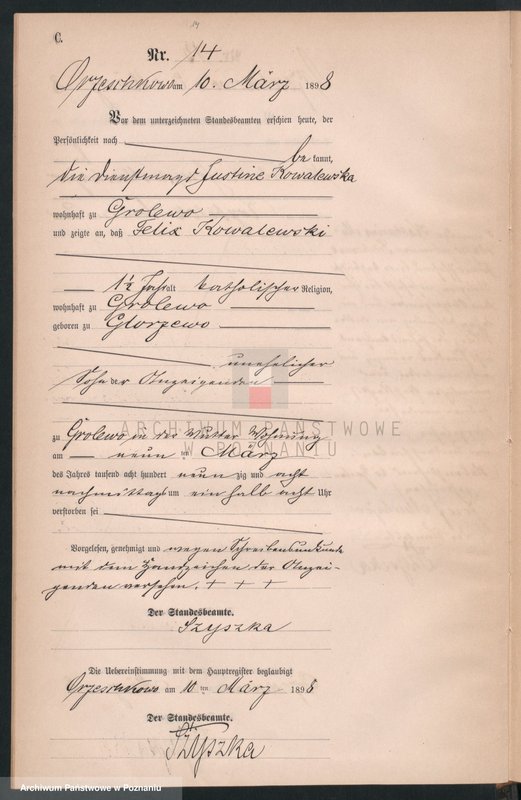 14
C.
Nr. 14
Orzeschkowo am 10. März 1898
Vor dem unterzeichneten Standesbeamten erschien heute, der
Persönlichkeit nach
be kannt,
die Dienstmagd Justine Kowalewska
wohnhaft zu Grolewo
und zeigte an, daß Felix Kowalewski
1½ Jahr alt katholischer Religion,
wohnhaft zu Grolewo
geboren zu Glorzewo
unehelicher
Sohn der Anzeigenden
zu Grolewo in der Mutter Wohnung
am neun ten März
des Jahres tausend acht hundert neun zig und acht
nachmittags um ein halb acht Uhr
verstorben sei
Vorgelesen, genehmigt und wegen Schreibensunkunde
mit dem Handzeichen der Anzei-
genden versehen. + + +
Der Standesbeamte.
Szyszka
Die Uebereinstimmung mit dem Hauptregister beglaubigt
Orzeschkowo am 10 ten März 1898
Der Standesbeamte.
Szyszka
ARCHIWUM PAŃSTWOWE
W POZNANIU
Archiwum Państwowe w Poznaniu